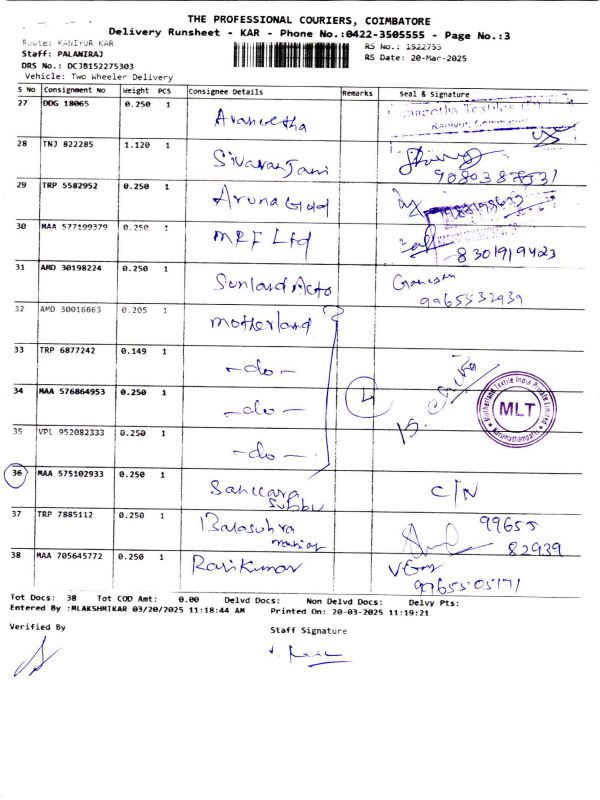 THE PROFESSIONAL COURIERS, COIMBATORE
Delivery Runsheet - KAR - Phone No.:0422-3505555 - Page No.:3
Route: KANIYUR KAR
RS No.: 1522753
Staff: PALANIRAJ
RS Date: 20-Mar-2025
DRS No.: DCJB152275303
Vehicle: Two Wheeler Delivery
S No Consignment No Weight PCS Consignee Details Remarks Seal & Signature
27 DDG 18065 0.250 1
28 TNJ 822285 1.120 1 Sivaranjani
29 TRP 5582952 0.250 1 Aruna Gold
30 MAA 577199379 0.250 1 MRF Ltd 8301919423
31 AMD 30198224 0.250 1 Sunland Acto Ganesan
9965532939
32 AMD 30016663 0.205 1 Motherland
33 TRP 6877242 0.149 1 -do-
34 MAA 576864953 0.250 1 -do- 4
Motherland Textile India Private Limited
MLT
Karumathampatti
35 VPL 952082333 0.250 1 -do-
36 MAA 575102933 0.250 1 Sankara
Subbu C/N
37 TRP 7885112 0.250 1 Balasubra
manian 99655
82939
38 MAA 705645772 0.250 1 Ravikumar
9765505171
Tot Docs: 38 Tot COD Amt: 0.00 Delvd Docs: Non Delvd Docs: Delvy Pts:
Entered By :MLAKSHMIKAR 03/20/2025 11:18:44 AM Printed On: 20-03-2025 11:19:21
Verified By
Staff Signature